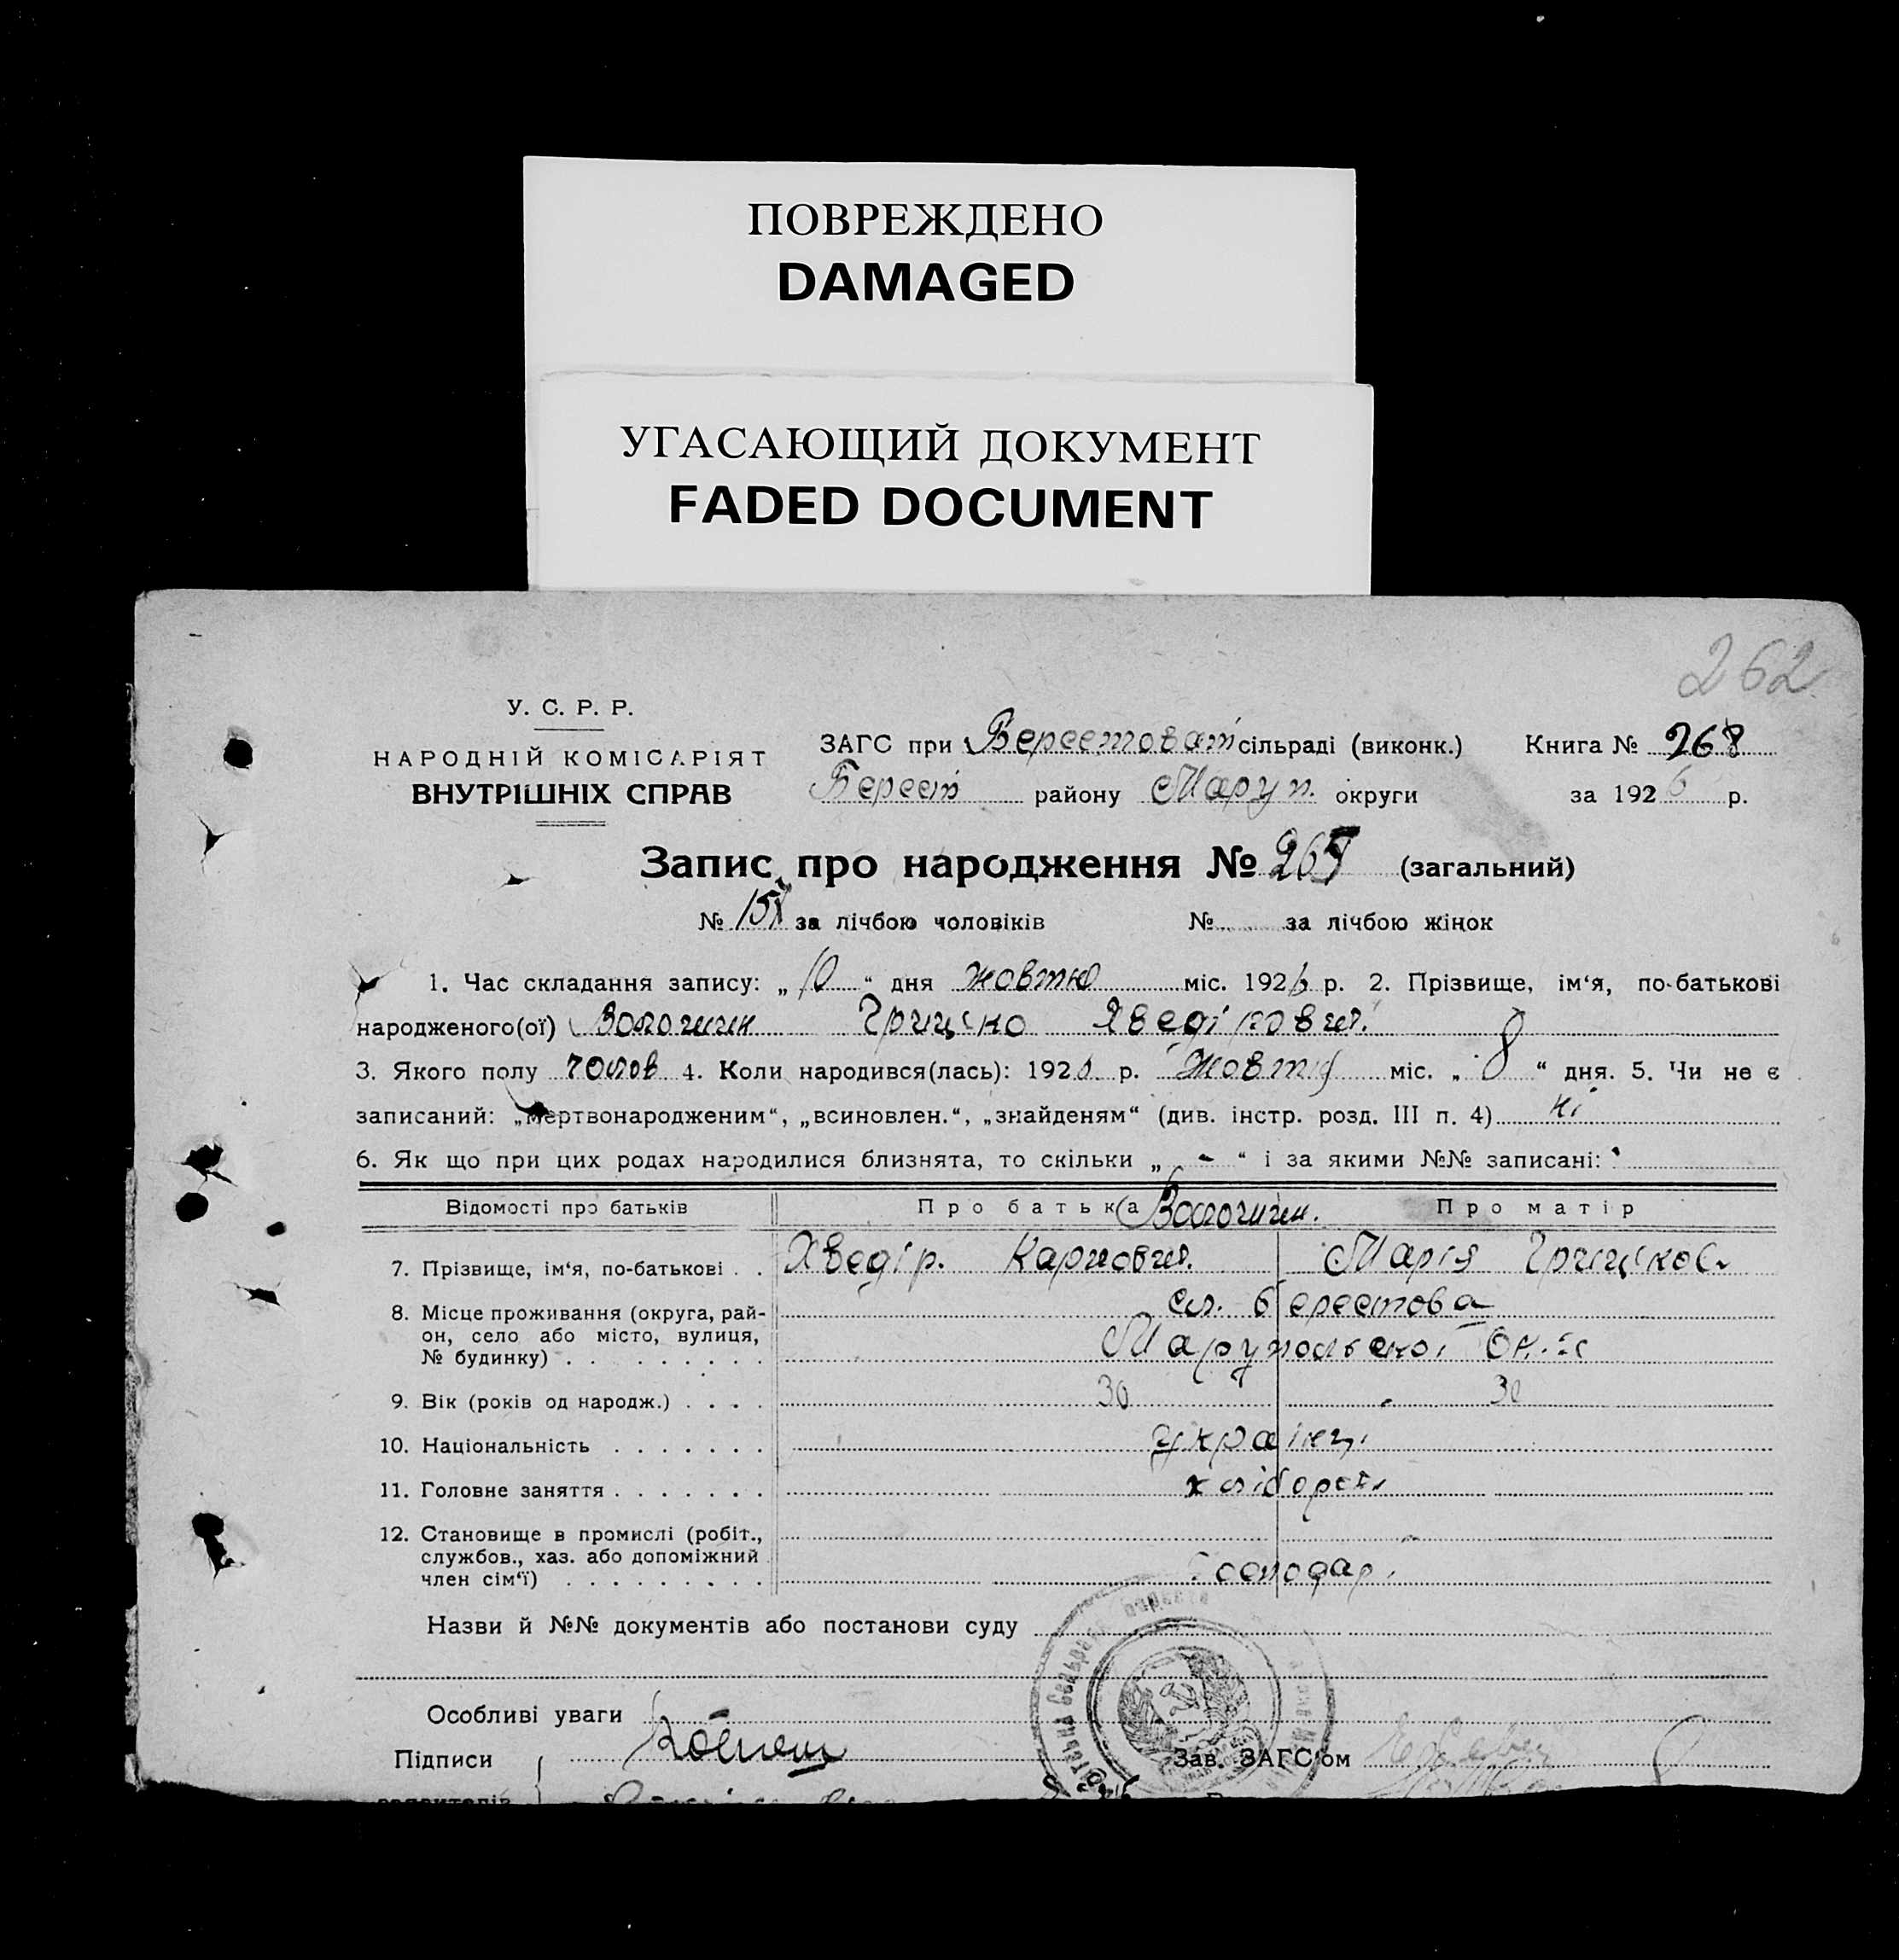 ПОВРЕЖДЕНО
DAMAGED
УГАСАЮЩИЙ ДОКУМЕНТ
FADED DOCUMENT
262
У. С. Р. Р.
НАРОДНІЙ КОМІСАРІЯТ
ВНУТРІШНІХ СПРАВ
ЗАГС при Берестоват сільраді (виконк.) Книга № 268
Берест району Маруп. округи за 1926 р.
Запис про народження № 267 (загальний)
№ 15 за лічбою чоловіків № за лічбою жінок
1. Час складання запису: „10“ дня жовтю міс. 1926 р. 2. Прізвище, ім‘я, по-батькові
народженого(ої) Волочин Грицько Хведірович.
3. Якого полу чолов 4. Коли народився(лась): 1926 р. Жовтня міс. „8“ дня. 5. Чи не є
записаний: „мертвонародженим“, „всиновлен.“, „знайденям“ (див. інстр. розд. III п. 4) ні
6. Як що при цих родах народилися близнята, то скільки „ - “ і за якими №№ записані:
Відомості про батьків Про батька Волочин. Про матір
7. Прізвище, ім‘я, по-батькові . . Хведір. Карпович. Марія Грицьков.
8. Місце проживання (округа, рай-
он, село або місто, вулиця,
№ будинку) . . . . . . . . .
сл. берестова
Марупольскоі Ок.
9. Вік (років од народж.) . . . . 30 30
10. Національність . . . . . . . україн.
11. Головне заняття . . . . . . . хлібороб
12. Становище в промислі (робіт.,
службов., хаз. або допоміжний
член сім‘ї) . . . . . . . . .
Господар.
Назви й №№ документів або постанови суду
Особливі уваги
Підписи
Зав. ЗАГС‘ом
заявителів